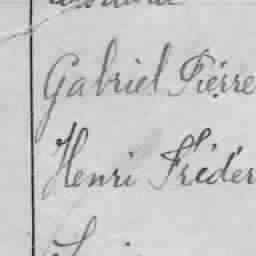 Gabriel Pierre
Henri Fréder